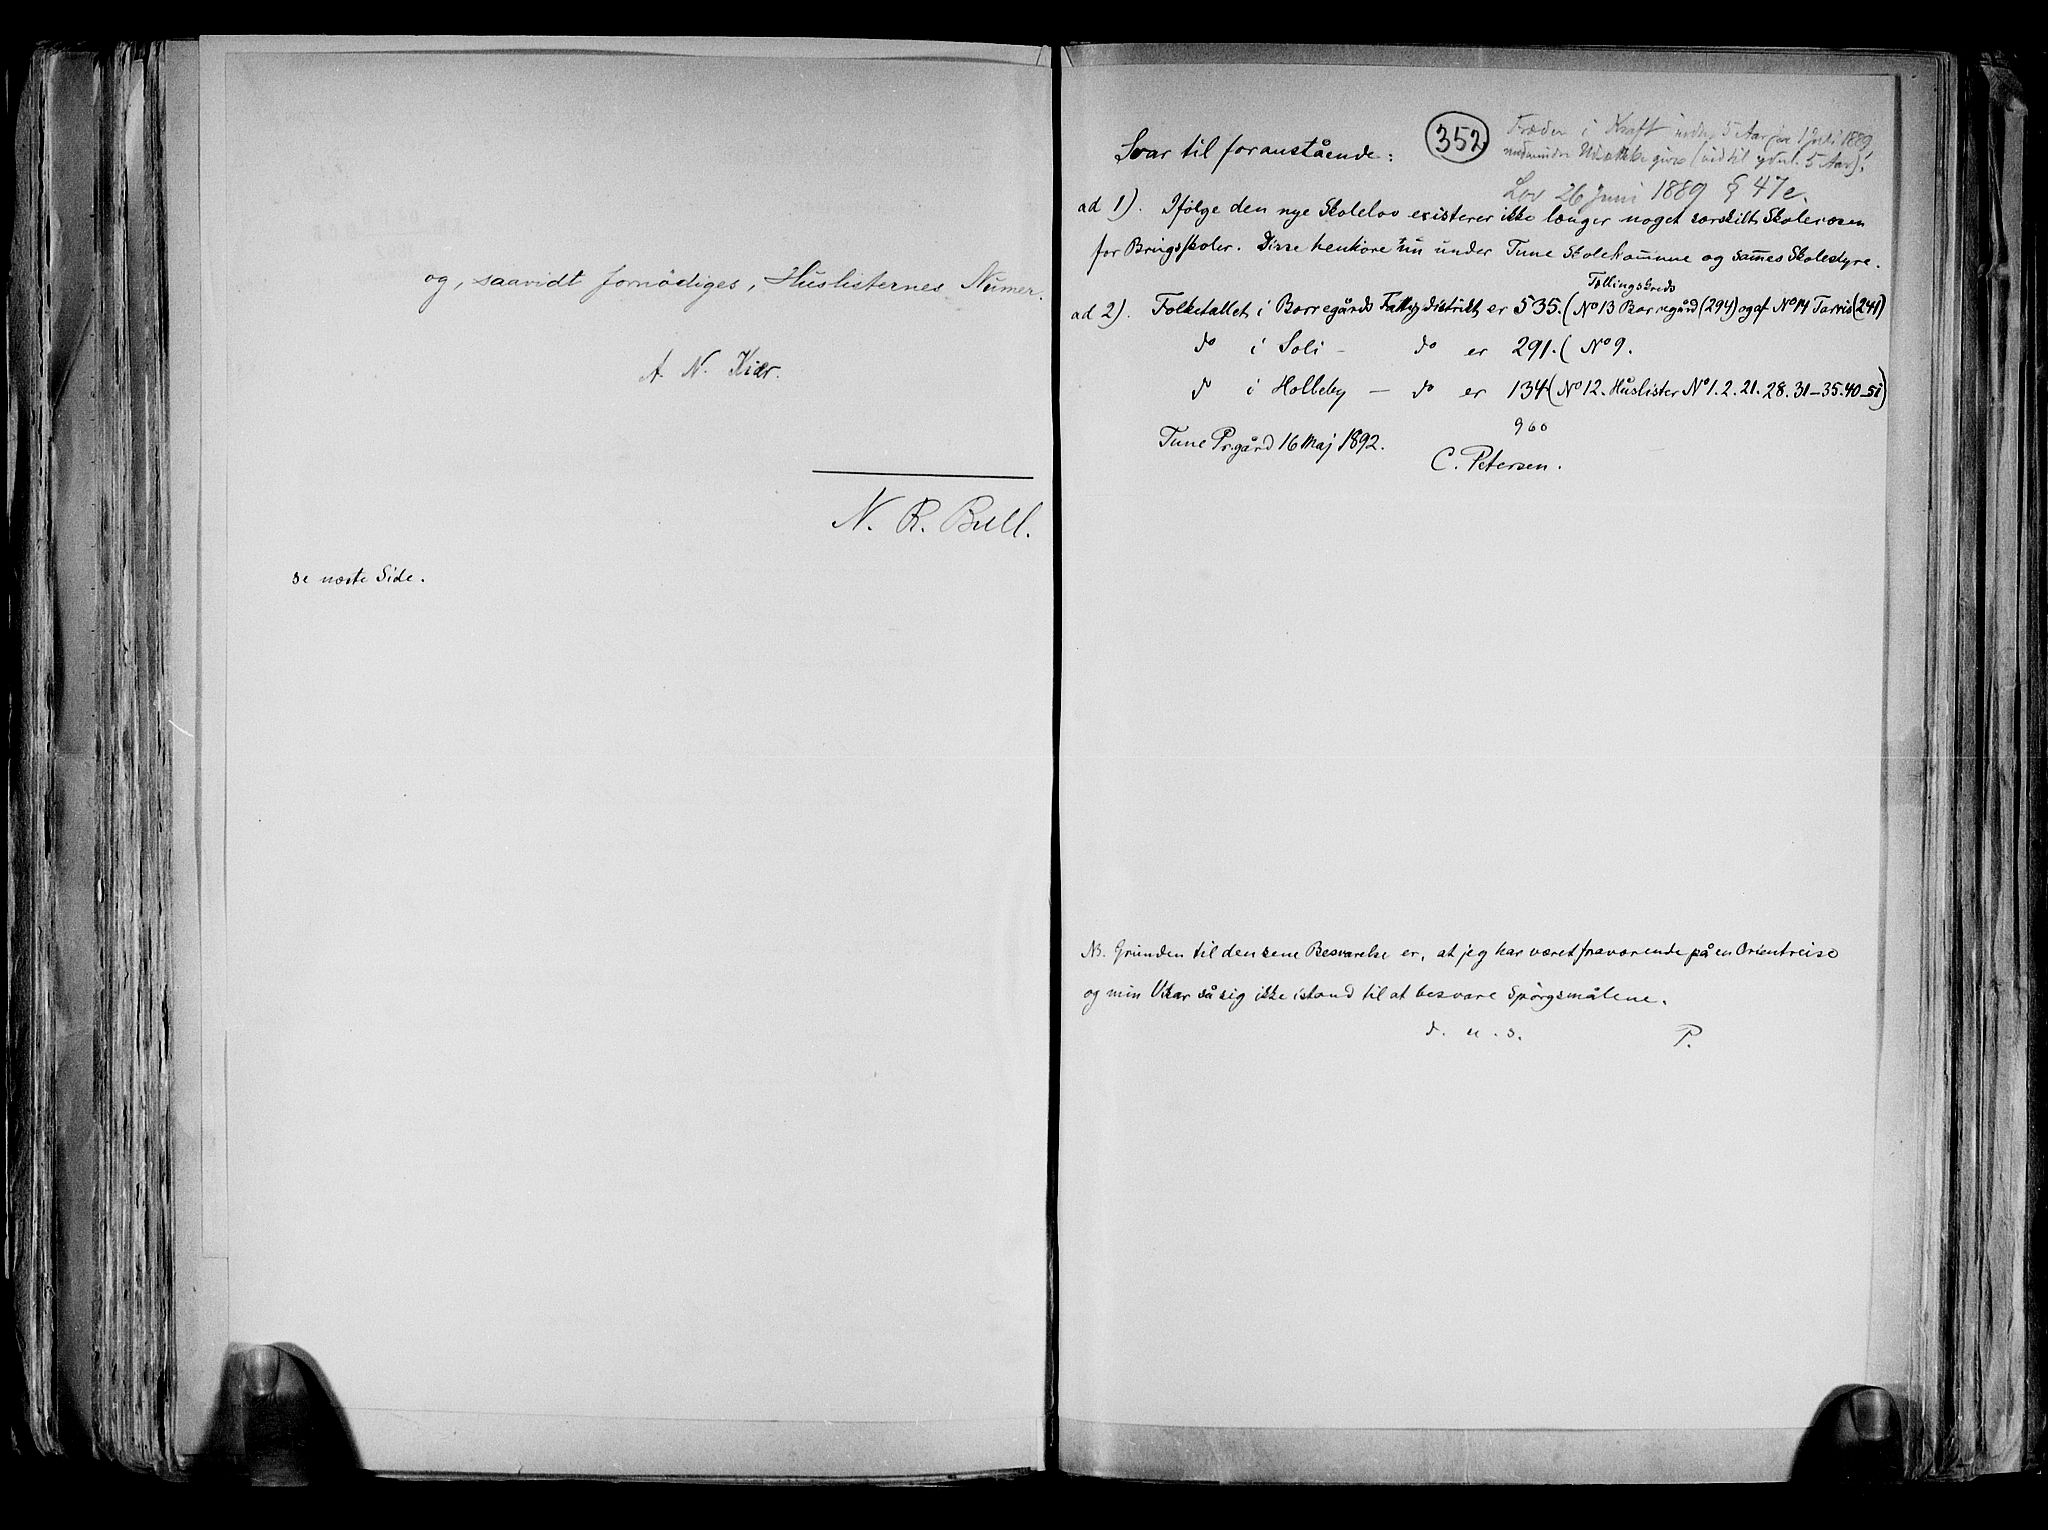 og, saavidt fornödiges, Huslisternes Numer.
A. N. Kiær.
N. R. Bull.
se næste Side.
352
Træder i Kraft inden 5 Aar fra 1 Juli 1889
Lov 26 Juni 1889 § 47e.
Svar til foranstående:
ad 1). Ifölge den nye Skolelov existerer ikke længer noget særskilt Skolevæsen
for Brugsskoler. Disse henhöre nu under Tune Skolekommune og sammes Skolestyre.
Tællingskreds
ad 2). Folketallet i Borregårds Fattigdistrikt er 535. (No 13 Borregård (294) og af No 14 Tarris (241)
do i Soli - do er 291. ( No 9.
do i Holleby - do er 134 ( No 12. Huslister No 1. 2. 21. 28. 31-35. 40-51)
960
Tune Prgård 16 Maj 1892.
C. Petersen.
NB. Grunden til den sene Besvarelse er, at jeg har været fraværende på en Orientreise
og min Vikar så sig ikke istand til at besvare Spörgsmålene.
d. u. s. P.